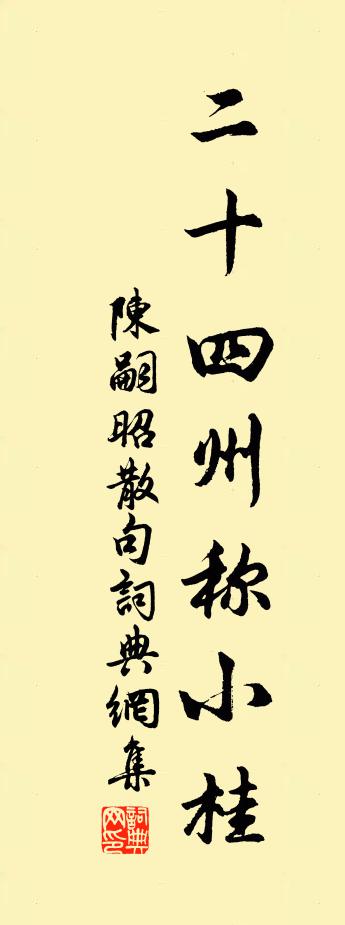 二十四州称小桂
陳嗣昭散句詞典網集
詞典網印